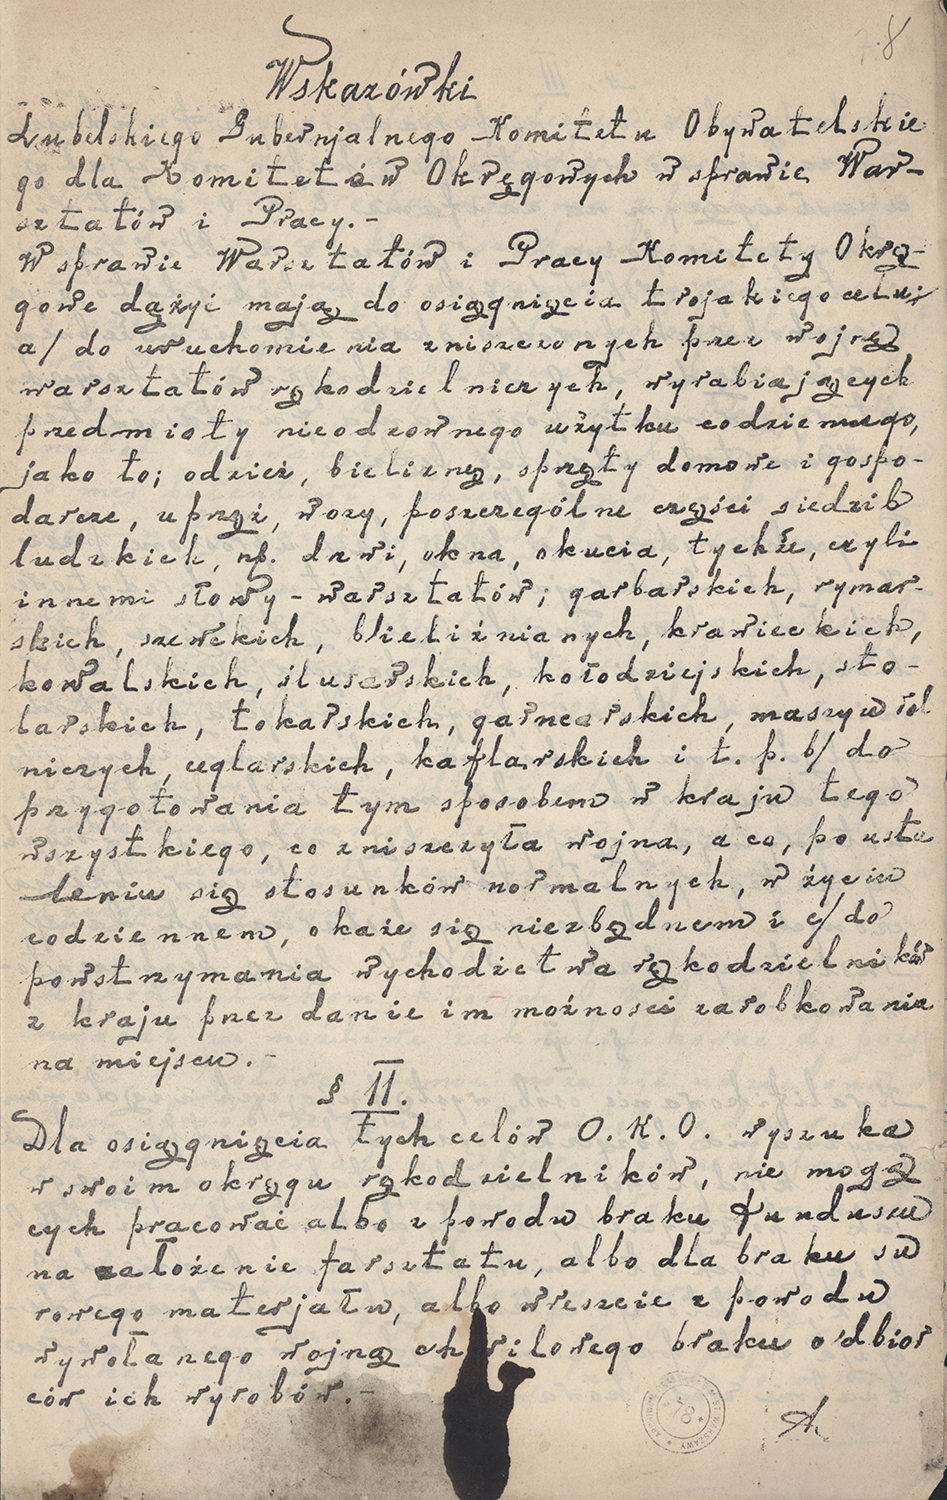 8
Wskazówki
Lubelskiego Gubernjalnego Komitetu Obywatelskie
go dla Komitetów Okręgowych w sprawie War-
sztatów i Pracy.-
W sprawie Warsztatów i Pracy Komitety Okrę-
gowe dążyć mają do osiągnięcia trojakiego celu:
a/ do uruchomienia zniszczonych przez wojnę
warsztatów rękodzielniczych, wyrabiających
przedmioty nieodzownego użytku codziennego,
jako to; odzież, bieliznę, sprzęty domowe i gospo-
darcze, uprząż, wozy, poszczególne części siedzib
ludzkich, np. drzwi, okna, okucia, tychże, czyli
innemi słowy - warsztatów; garbarskich, rymar-
skich, szewckich, bieliźnianych, krawieckich,
kowalskich, ślusarskich, kołodziejskich, sto-
larskich, tokarskich, garncarskich, maszyw rol
niczych, ceglarskich, kaflarskich i t. p. b/ do
przygotowania tym sposobem w kraju tego
wszystkiego, co zniszczyła wojna, a co, po usta
leniu się stosunków normalnych, w życiu
codziennem, okaże się niezbędnem i c/ do
powstrzymania wychodźctwa rękodzielników
z kraju przez danie im możności zarobkowania
na miejscu.-
§ II.
Dla osiągnięcia tych celów O. K. O. wyszuka
w swoim okręgu rękodzielników, nie mogą
cych pracować albo z powodu braku funduszu
na założenie farsztatu, albo dla braku su
rowego materjału, albo wreszcie z powodu
wywołanego wojną chwilowego braku odbior
ców ich wyrobów.-